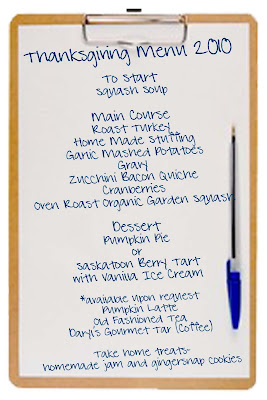 Thanksgiving Menu 2010
To Start
Squash Soup
Main Course
Roast Turkey
Home Made Stuffing
Ganic Mashed Potatoes
Gravy
Zucchini Bacon Quiche
Cranberries
Oven Roast Organic Garden Squash
Dessert
Pumpkin Pie
or
Saskatoon Berry Tart
with Vanilla Ice Cream
*available upon request
Pumpkin Latte
Old Fashioned Tea
Daryl's Gourmet Tar (Coffee)
Take home treats-
homemade jam and gingersnap cookies